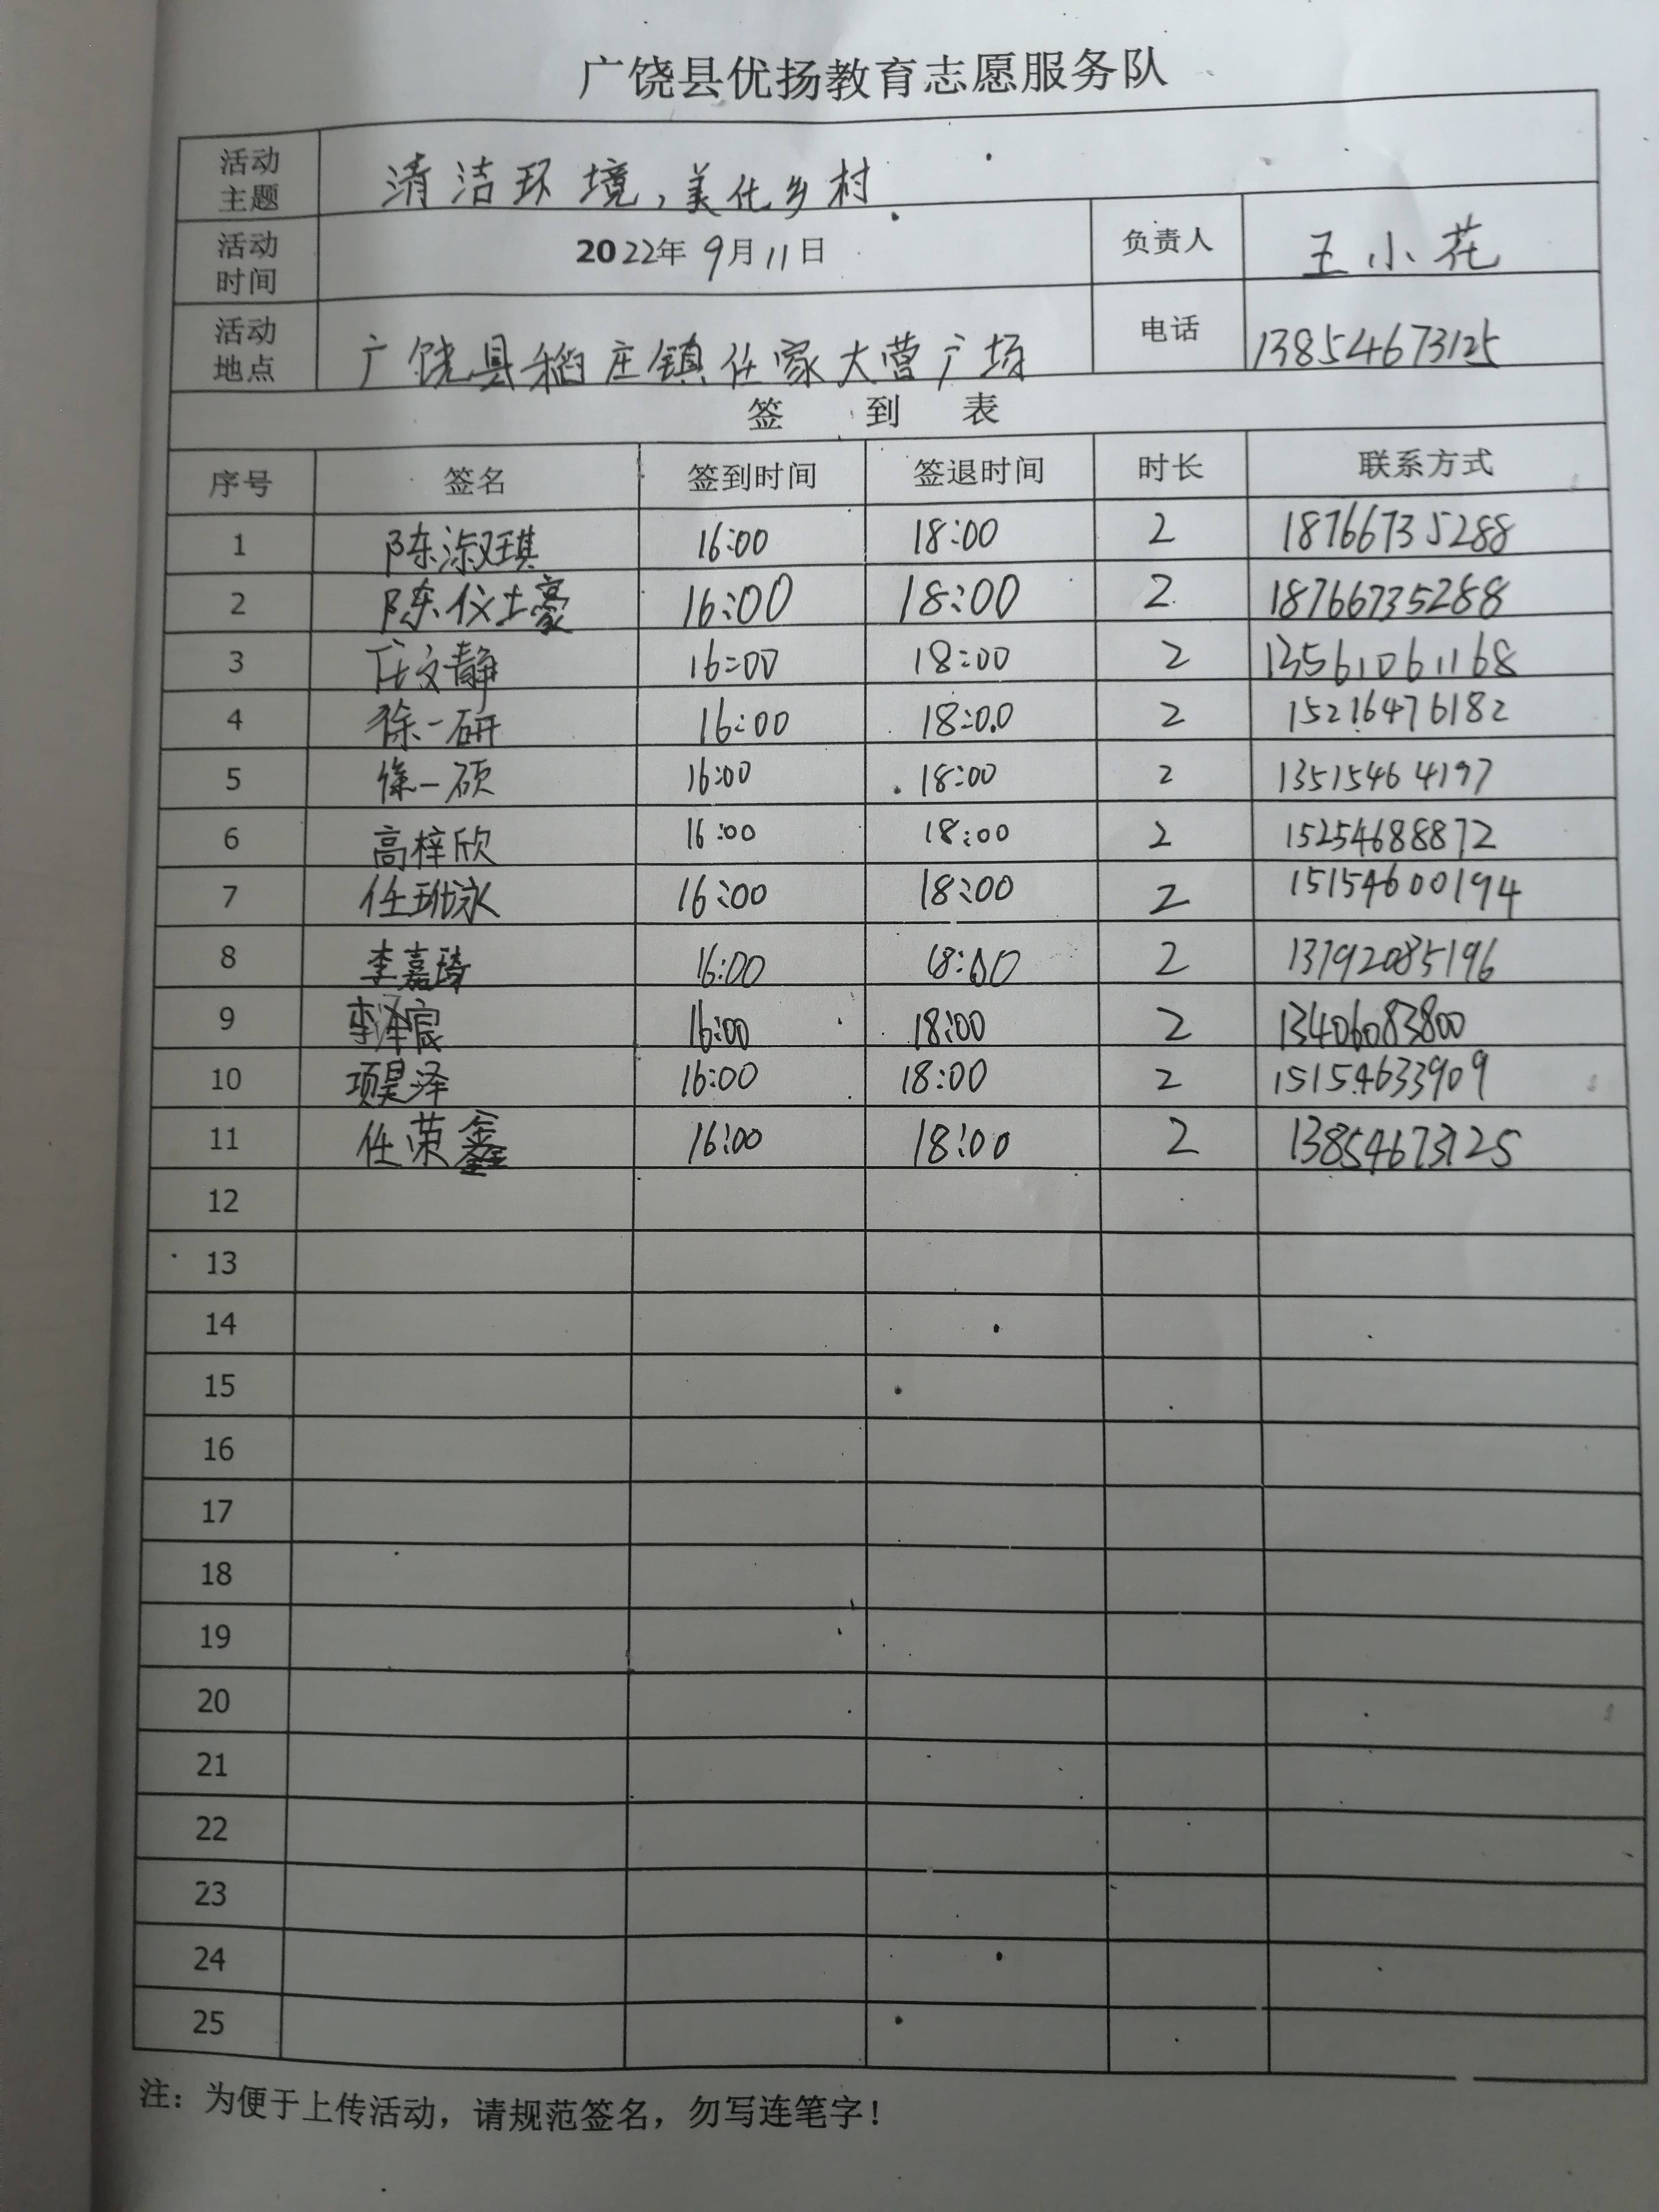 广饶县优扬教育志愿服务队
活动主题 清洁环境，美化乡村
活动时间 2022年9月11日 负责人 王小花
活动地点 广饶县稻庄镇任家大营广场 电话 13854673125
签 到 表
序号 签名 签到时间 签退时间 时长 联系方式
1 陈淑琪 16:00 18:00 2 18766735288
2 陈仪士豪 16:00 18:00 2 18766735288
3 任文静 16:00 18:00 2 13561061168
4 徐一研 16:00 18:00 2 15216476182
5 徐一硕 16:00 18:00 2 13515464197
6 高梓欣 16:00 18:00 2 15254688872
7 任 16:00 18:00 2 15154600194
8 李嘉琦 16:00 18:00 2 13792085196
9 李泽宸 16:00 18:00 2 13406083800
10 项昊泽 16:00 18:00 2 15154633909
11 任荣鑫 16:00 18:00 2 13854673125
12
13
14
15
16
17
18
19
20
21
22
23
24
25
注：为便于上传活动，请规范签名，勿写连笔字！